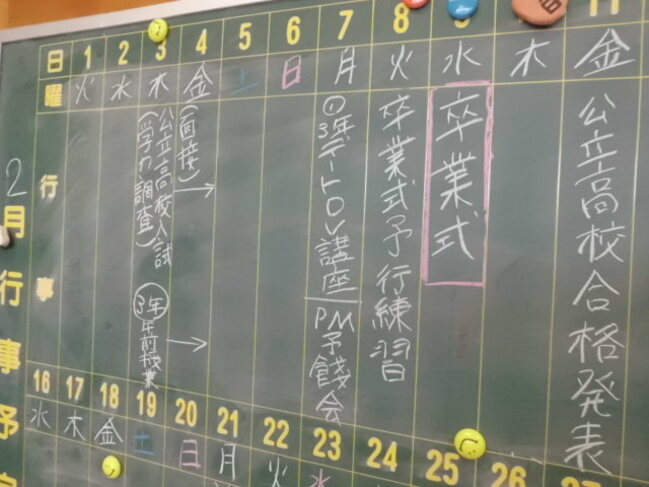 2月行事予定
日 1 2 3 4 5 6 7 8 11
曜 火 水 木 金 土 日 月 火 水 木 金
行事
公立高校入試
(学力調査)
3年午前授業
(面接)
①3年デートDV講座
PM予餞会
卒業式予行練習
卒業式
公立高校合格発表
16 17 18 19 20 21 22 23 24 25 26
水 木 金 土 日 月 火 水